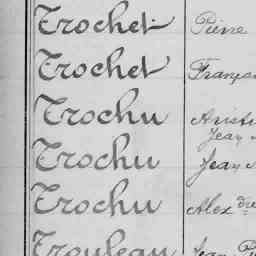 Trochet Pierre
Trochet Franç
Trochu Arist
Jean
Trochu Jean
Trochu Alexdre
Trouleau Jean